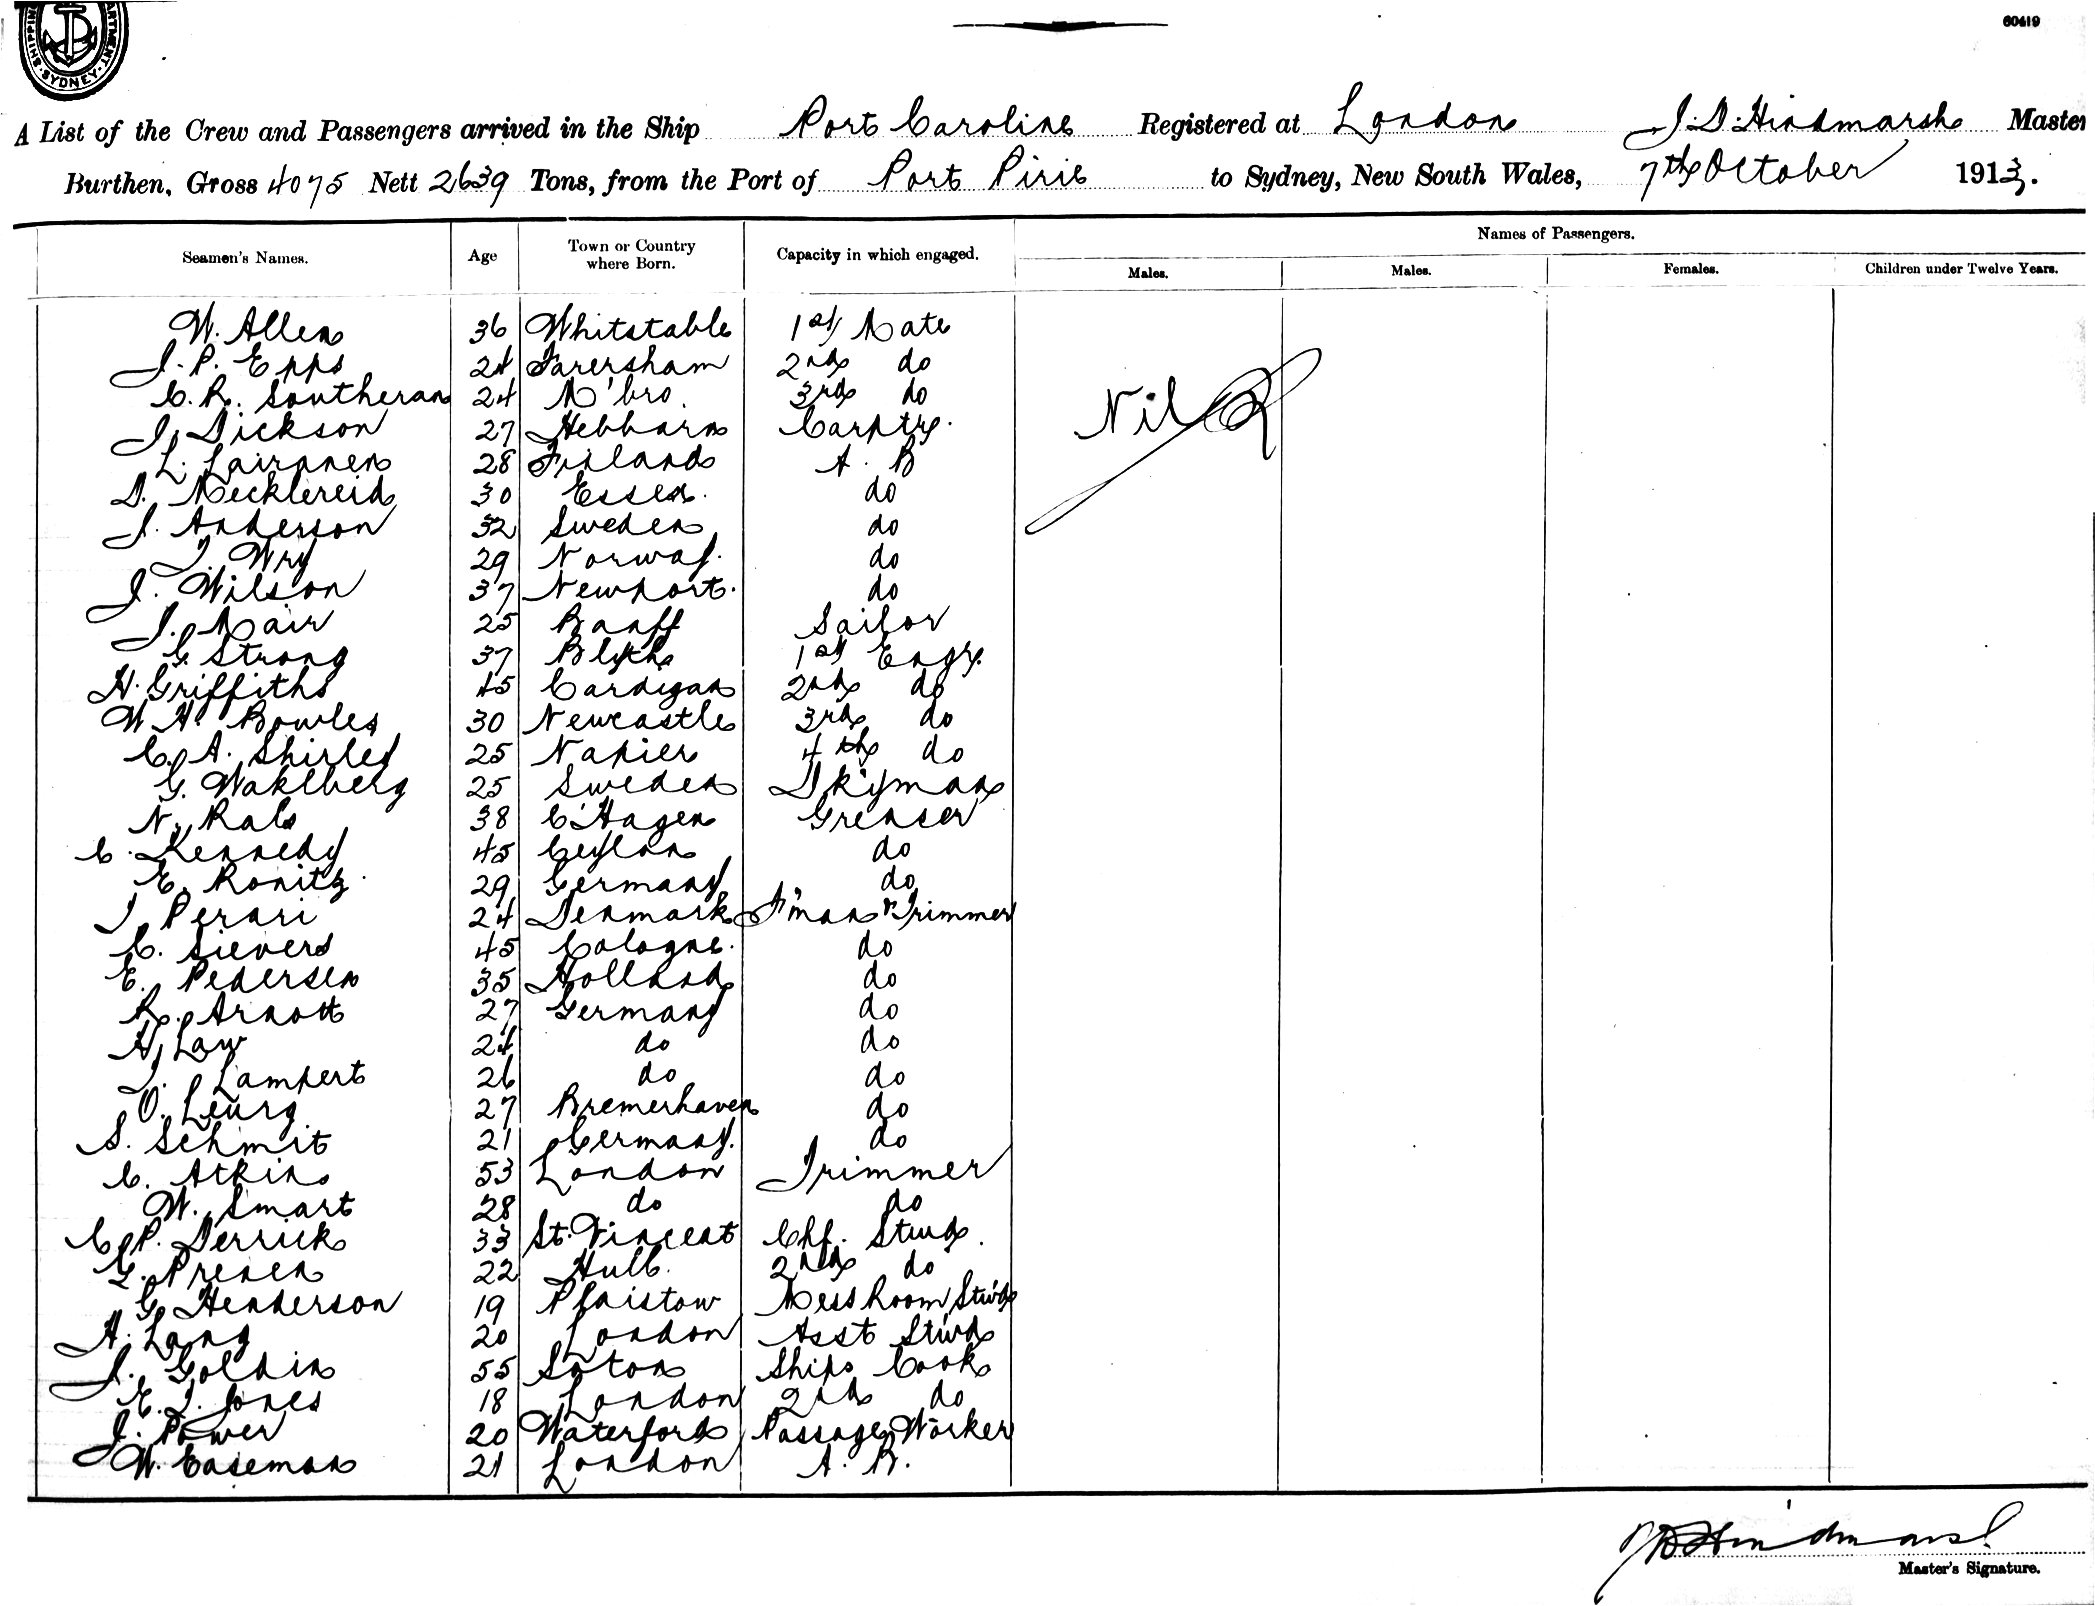 SHIPPING DEPARTMENT SYDNEY
60419
A List of the Crew and Passengers arrived in the Ship Port Caroline Registered at London J. D. Hindmarsh Master
Burthen, Gross 4075 Nett 2639 Tons, from the Port of Port Pirie to Sydney, New South Wales, 7th October 1913.
Seamen's Names. Age Town or Country where Born. Capacity in which engaged. Names of Passengers.
Males. Males. Females. Children under Twelve Years.
W. Allen 36 Whitstable 1st Mate
J. P. Epps 24 Faversham 2nd do
C. R. Southeran 24 M'bro. 3rd do
Nil
J. Dickson 27 Hebburn Carptr.
L. Lairanen 28 Finland A. B
D. Mecklereid 30 Essex. do
J. Anderson 32 Sweden do
T. Wry 29 Norway. do
J. Wilson 37 Newport. do
J. Mair 25 Banff Sailor
G. Strong 37 Blyth 1st Engr.
H. Griffiths 45 Cardigan 2nd do
W. H. Bowles 30 Newcastle 3rd do
C. A. Shirley 25 Napier 4th do
G. Wahlberg 25 Sweden Dkyman
N. Rals 38 C'Hagen Greaser
C. Kennedy 45 Ceylon do
E. Ronitz 29 Germany do
J. Perari 24 Denmark F'man & Trimmer
C. Sievers 45 Cologne. do
E. Pedersen 35 Holland do
R. Arnott 27 Germany do
H. Law 24 do do
J. Lampert 26 do do
O. Leurg 27 Bremerhaven do
S. Schmit 21 Germany. do
C. Atkins 53 London Trimmer
W. Smart 28 do do
C. P. Derrick 33 St. Vincent Chf. Stwd.
G. Preven 22 Hull. 2nd do
G. Henderson 19 Plaistow Mess Room Stwd
H. Lang 20 London Asst Stwd
J. Goldin 55 Ships Cook
E. J. Jones 18 London 2nd do
J. Power 20 Waterford Passage Worker
W. Easeman 21 London A. B.
J D Hindmarsh
Master's Signature.